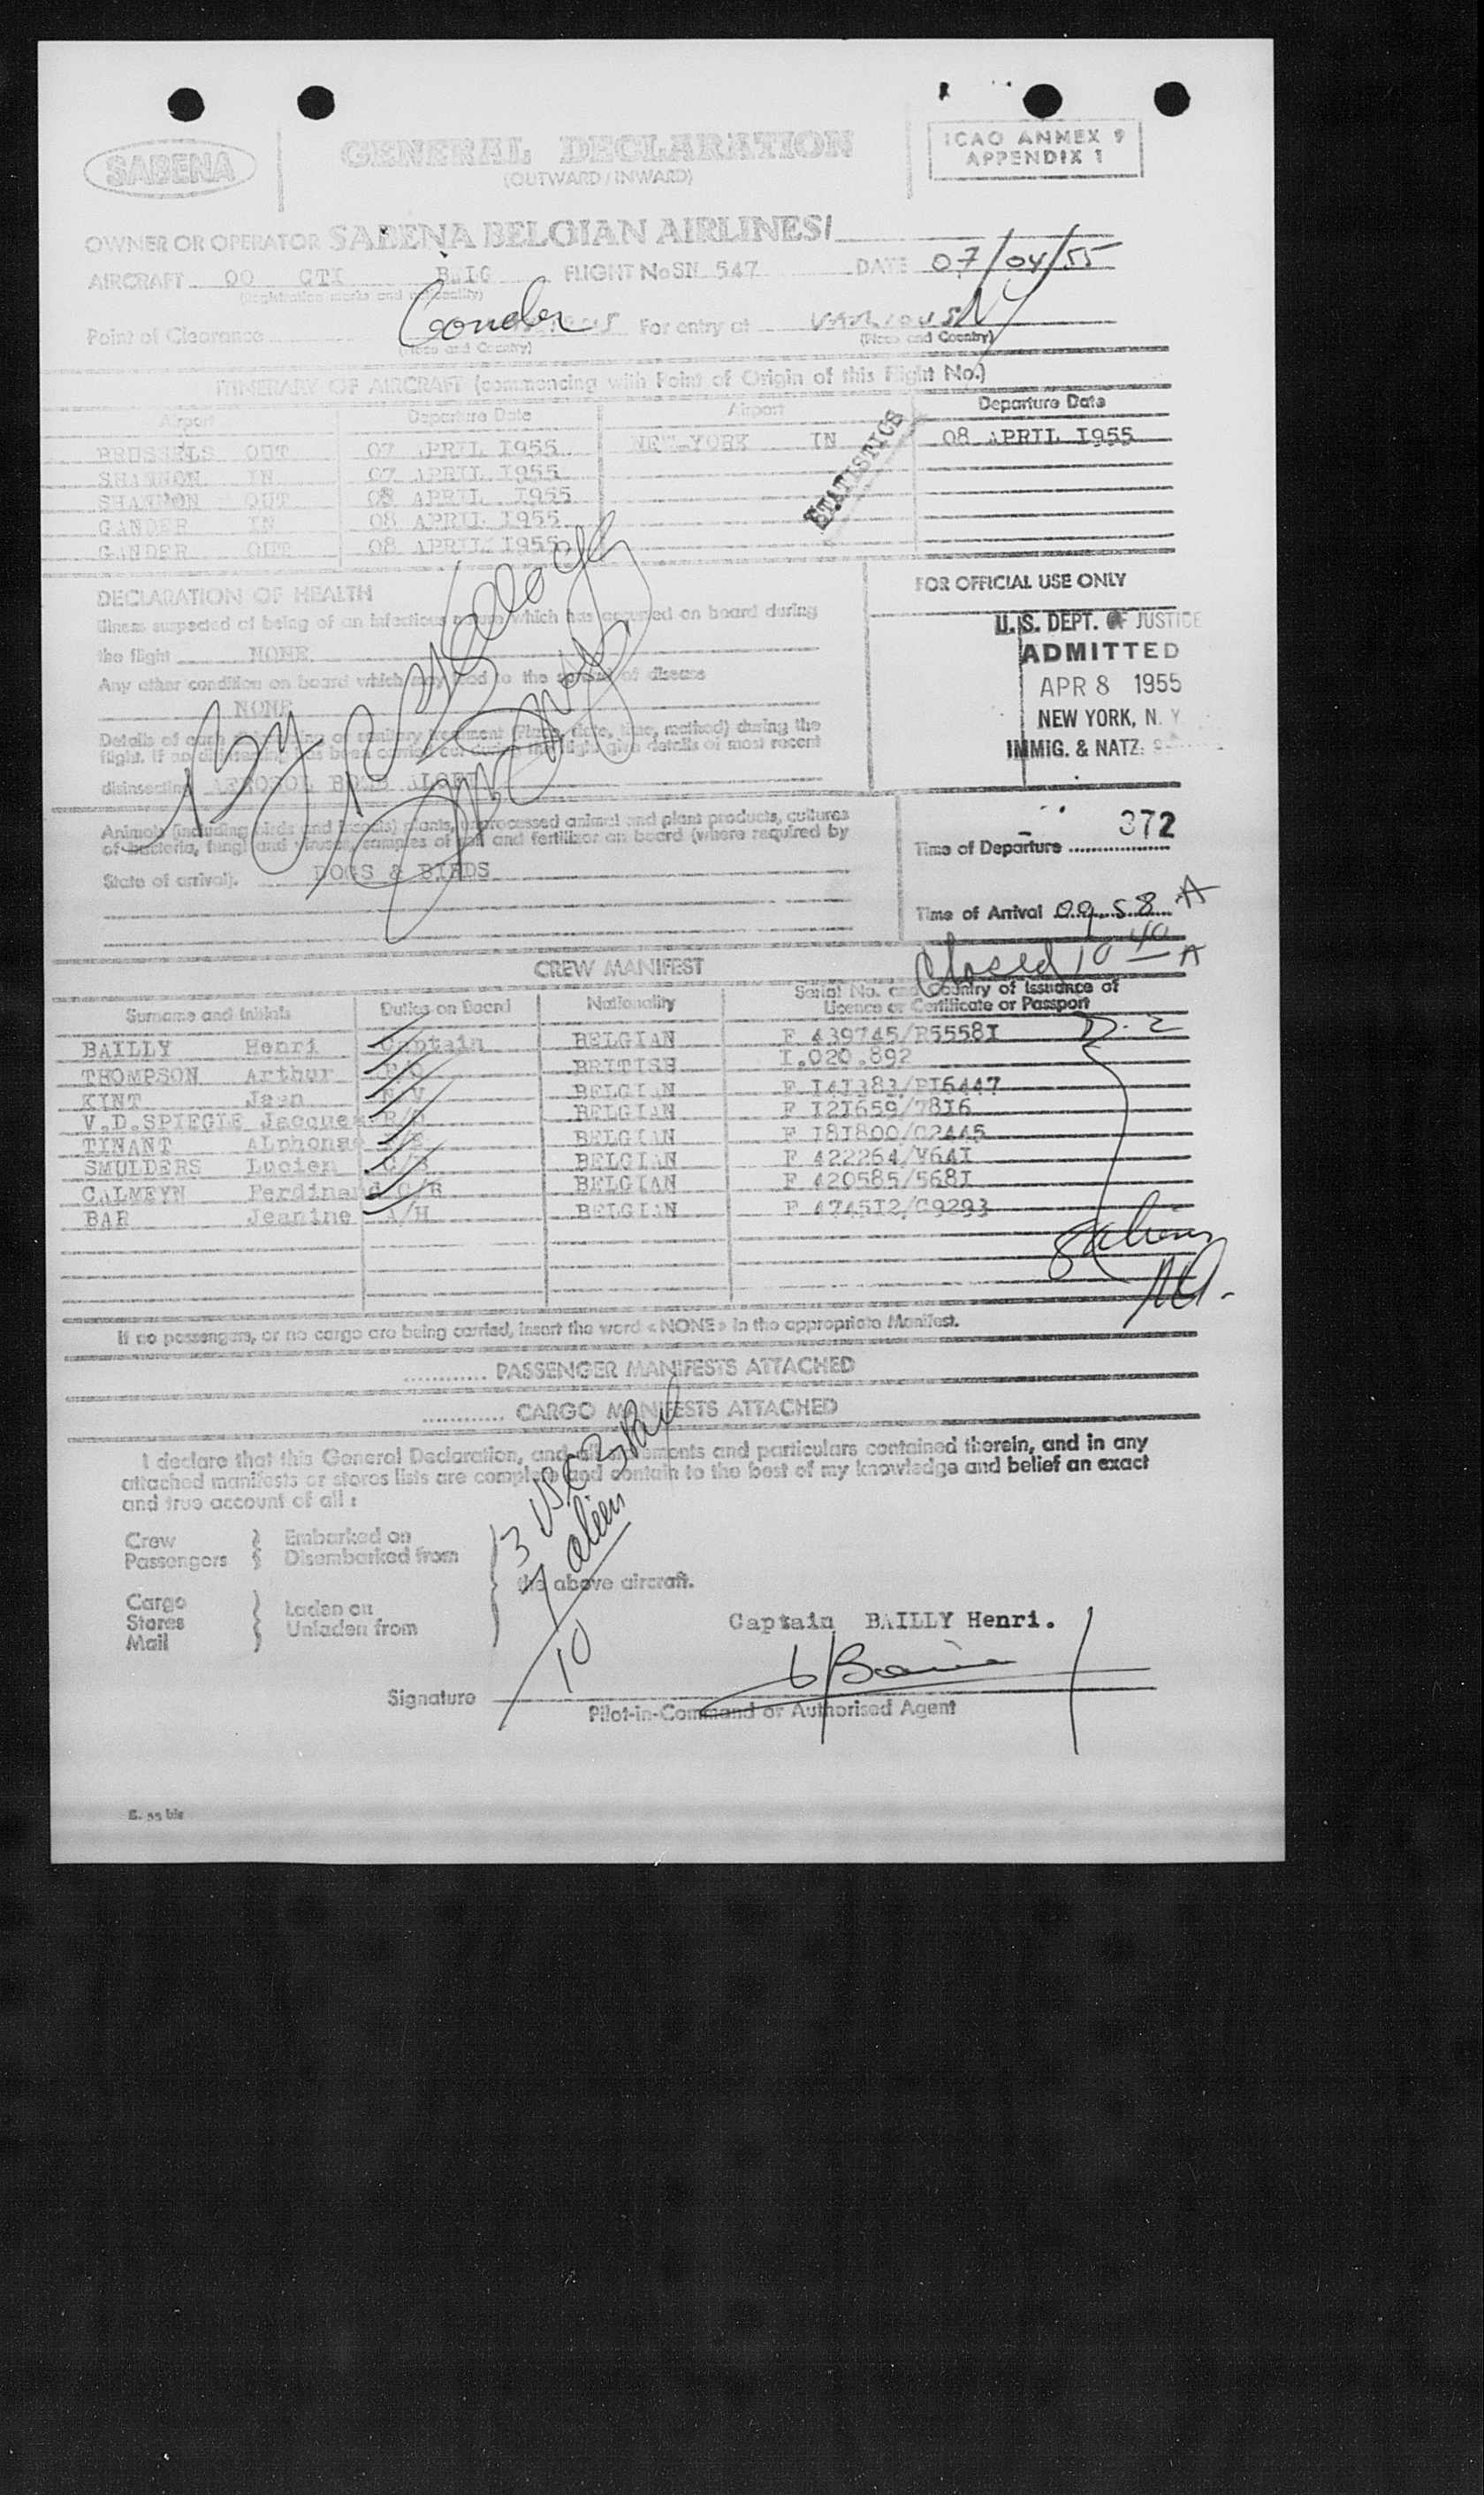 SABENA
GENERAL DECLARATION
(OUTWARD/INWARD)
ICAO ANNEX 9
APPENDIX 1
OWNER OR OPERATOR SABENA BELGIAN AIRLINES/
AIRCRAFT OO CTI FLIGHT No SN 547 DATE 07/04/55
(Registration marks and nationality)
Point of Clearance For entry at VARIOUS NY
(Place and Country) (Place and Country)
ITINERARY OF AIRCRAFT (commencing with Point of Origin of this Flight No.)
Airport Departure Date Airport Departure Date
BRUSSELS OUT 07 APRIL I955 NEW-YORK IN 08 APRIL I955
SHANNON IN 07 APRIL I955
SHANNON OUT 08 APRIL I955
GANDER IN 08 APRIL I955
GANDER OUT 08 APRIL I955
STATISTICS
DECLARATION OF HEALTH
Illness suspected of being of an infectious nature which has occured on board during
the flight NONE
Any other condition on board which may lead to the spread of disease
NONE
Details of each disinsecting or sanitary treatment (Place, date, time, method) during the
flight. If no disinsecting has been carried out during the flight give details of most recent
disinsecting AEROSOL BOMB ALOFT
Animals (including birds and insects) plants, unprocessed animal and plant products, cultures
of bacteria, fungi and viruses, samples of soil and fertilizer on board (where required by
State of arrival). DOGS & BIRDS
FOR OFFICIAL USE ONLY
U.S. DEPT. OF JUSTICE
ADMITTED
APR 8 1955
NEW YORK, N. Y
IMMIG. & NATZ.
372
Time of Departure
Time of Arrival 09.58 A
Closed 10 40 A
CREW MANIFEST
Surname and Initials Duties on Board Nationality Serial No. and Country of Issuance of
Licence or Certificate or Passport
BAILLY Henri Captain BELGIAN F 439745/R5558I D-2
THOMPSON Arthur F/O BRITISH I.020.892
KINT Jaen N/V BELGIAN F I4I383/PI6447
V.D.SPIEGLE Jacques R/O BELGIAN F I2I659/78I6
TINANT ALphonse BELGIAN F I8I800/C2445
SMULDERS Lucien C/S BELGIAN F 422264/V64I
CALMEYN Ferdinand C/R BELGIAN F 420585/568I
BAR Jeanine A/H BELGIAN F 4745I2/C9293
If no passengers, or no cargo are being carried, insert the word « NONE » in the appropriate Manifest.
PASSENGER MANIFESTS ATTACHED
CARGO MANIFESTS ATTACHED
I declare that this General Declaration, and all statements and particulars contained therein, and in any
attached manifests or stores lists are complete and contain to the best of my knowledge and belief an exact
and true account of all :
Crew Embarked on
Passengers Disembarked from
the above aircraft.
Cargo Laden on
Stores Unladen from
Mail
3 USC
7 alien
10
Captain BAILLY Henri.
Signature
Pilot-in-Command or Authorised Agent